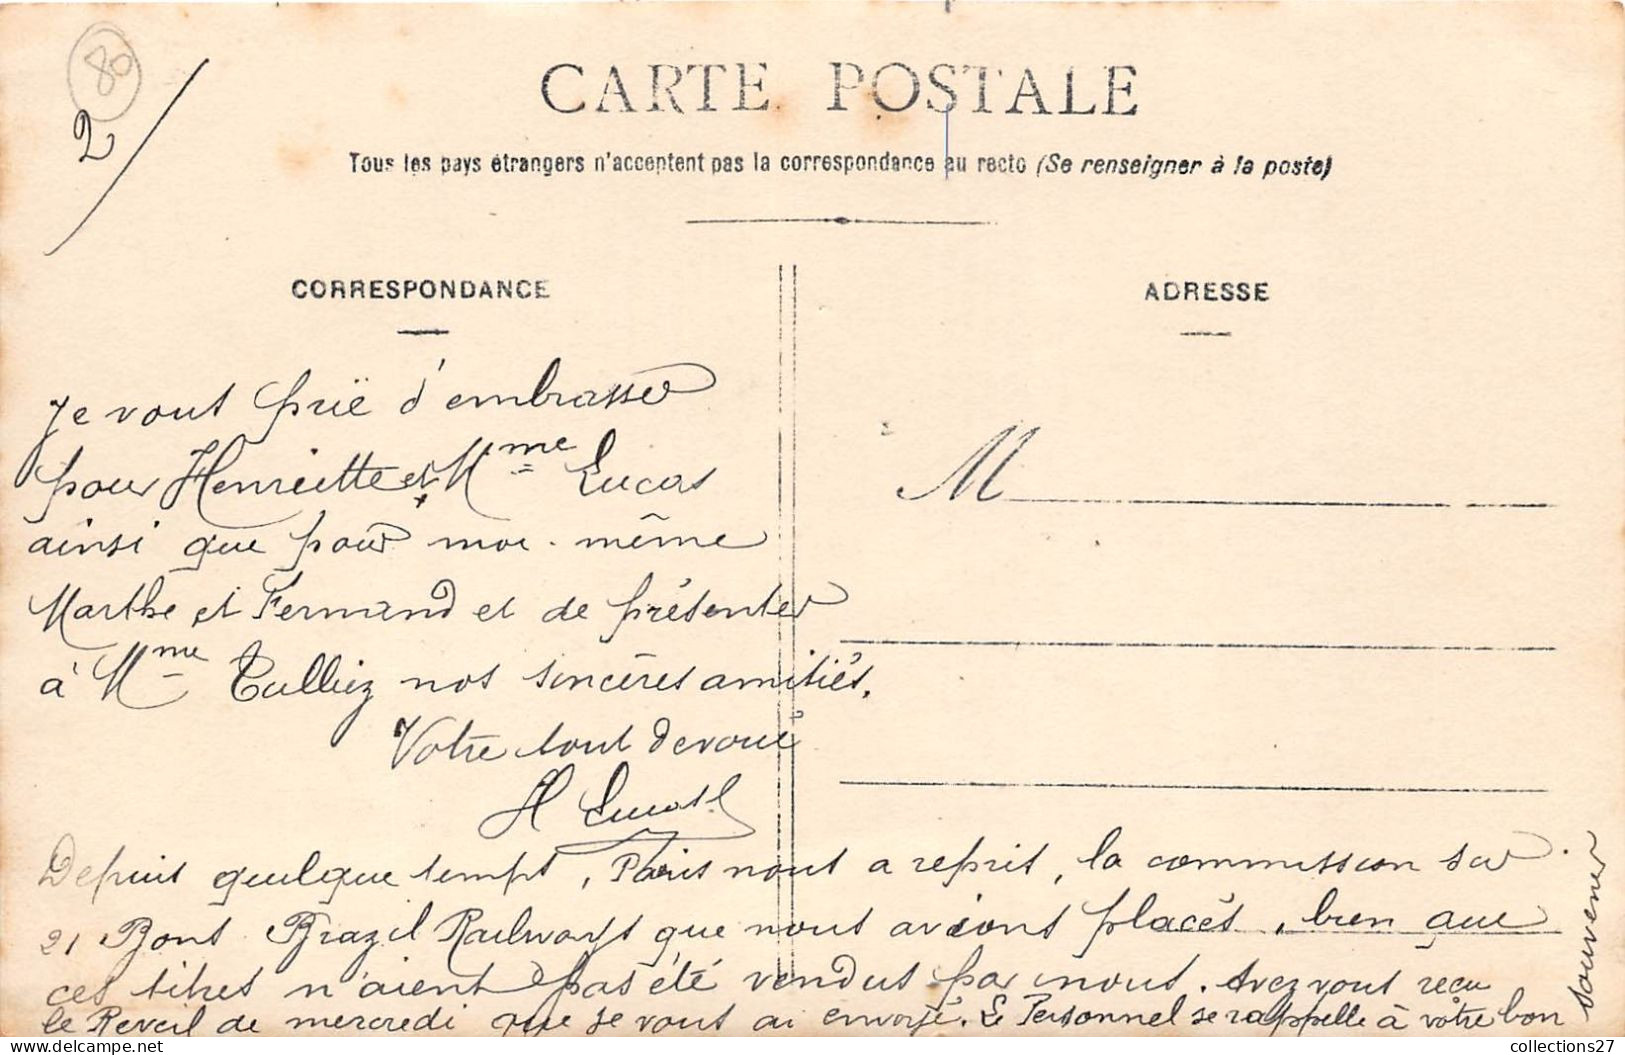 80
2
CARTE POSTALE
Tous les pays étrangers n'acceptent pas la correspondance au recto (Se renseigner à la poste)
CORRESPONDANCE
ADRESSE
M
Je vous prie d'embrasser
pour Henriette et Mme Lucas
ainsi que pour moi-même
Marthe et Fernand et de présenter
à Mme Tulliez nos sincères amitiés.
Votre tout dévoué
H Lucas
Depuis quelque temps, Paris nous a repris, la commission sur
21 Bons Brazil Railways que nous avions placés, bien que
ces titres n'aient pas été vendus par nous. Avez vous recu
le Reveil de mercredi que je vous ai envoyé. Le Personnel se rappelle à votre bon
souvenir
collections27